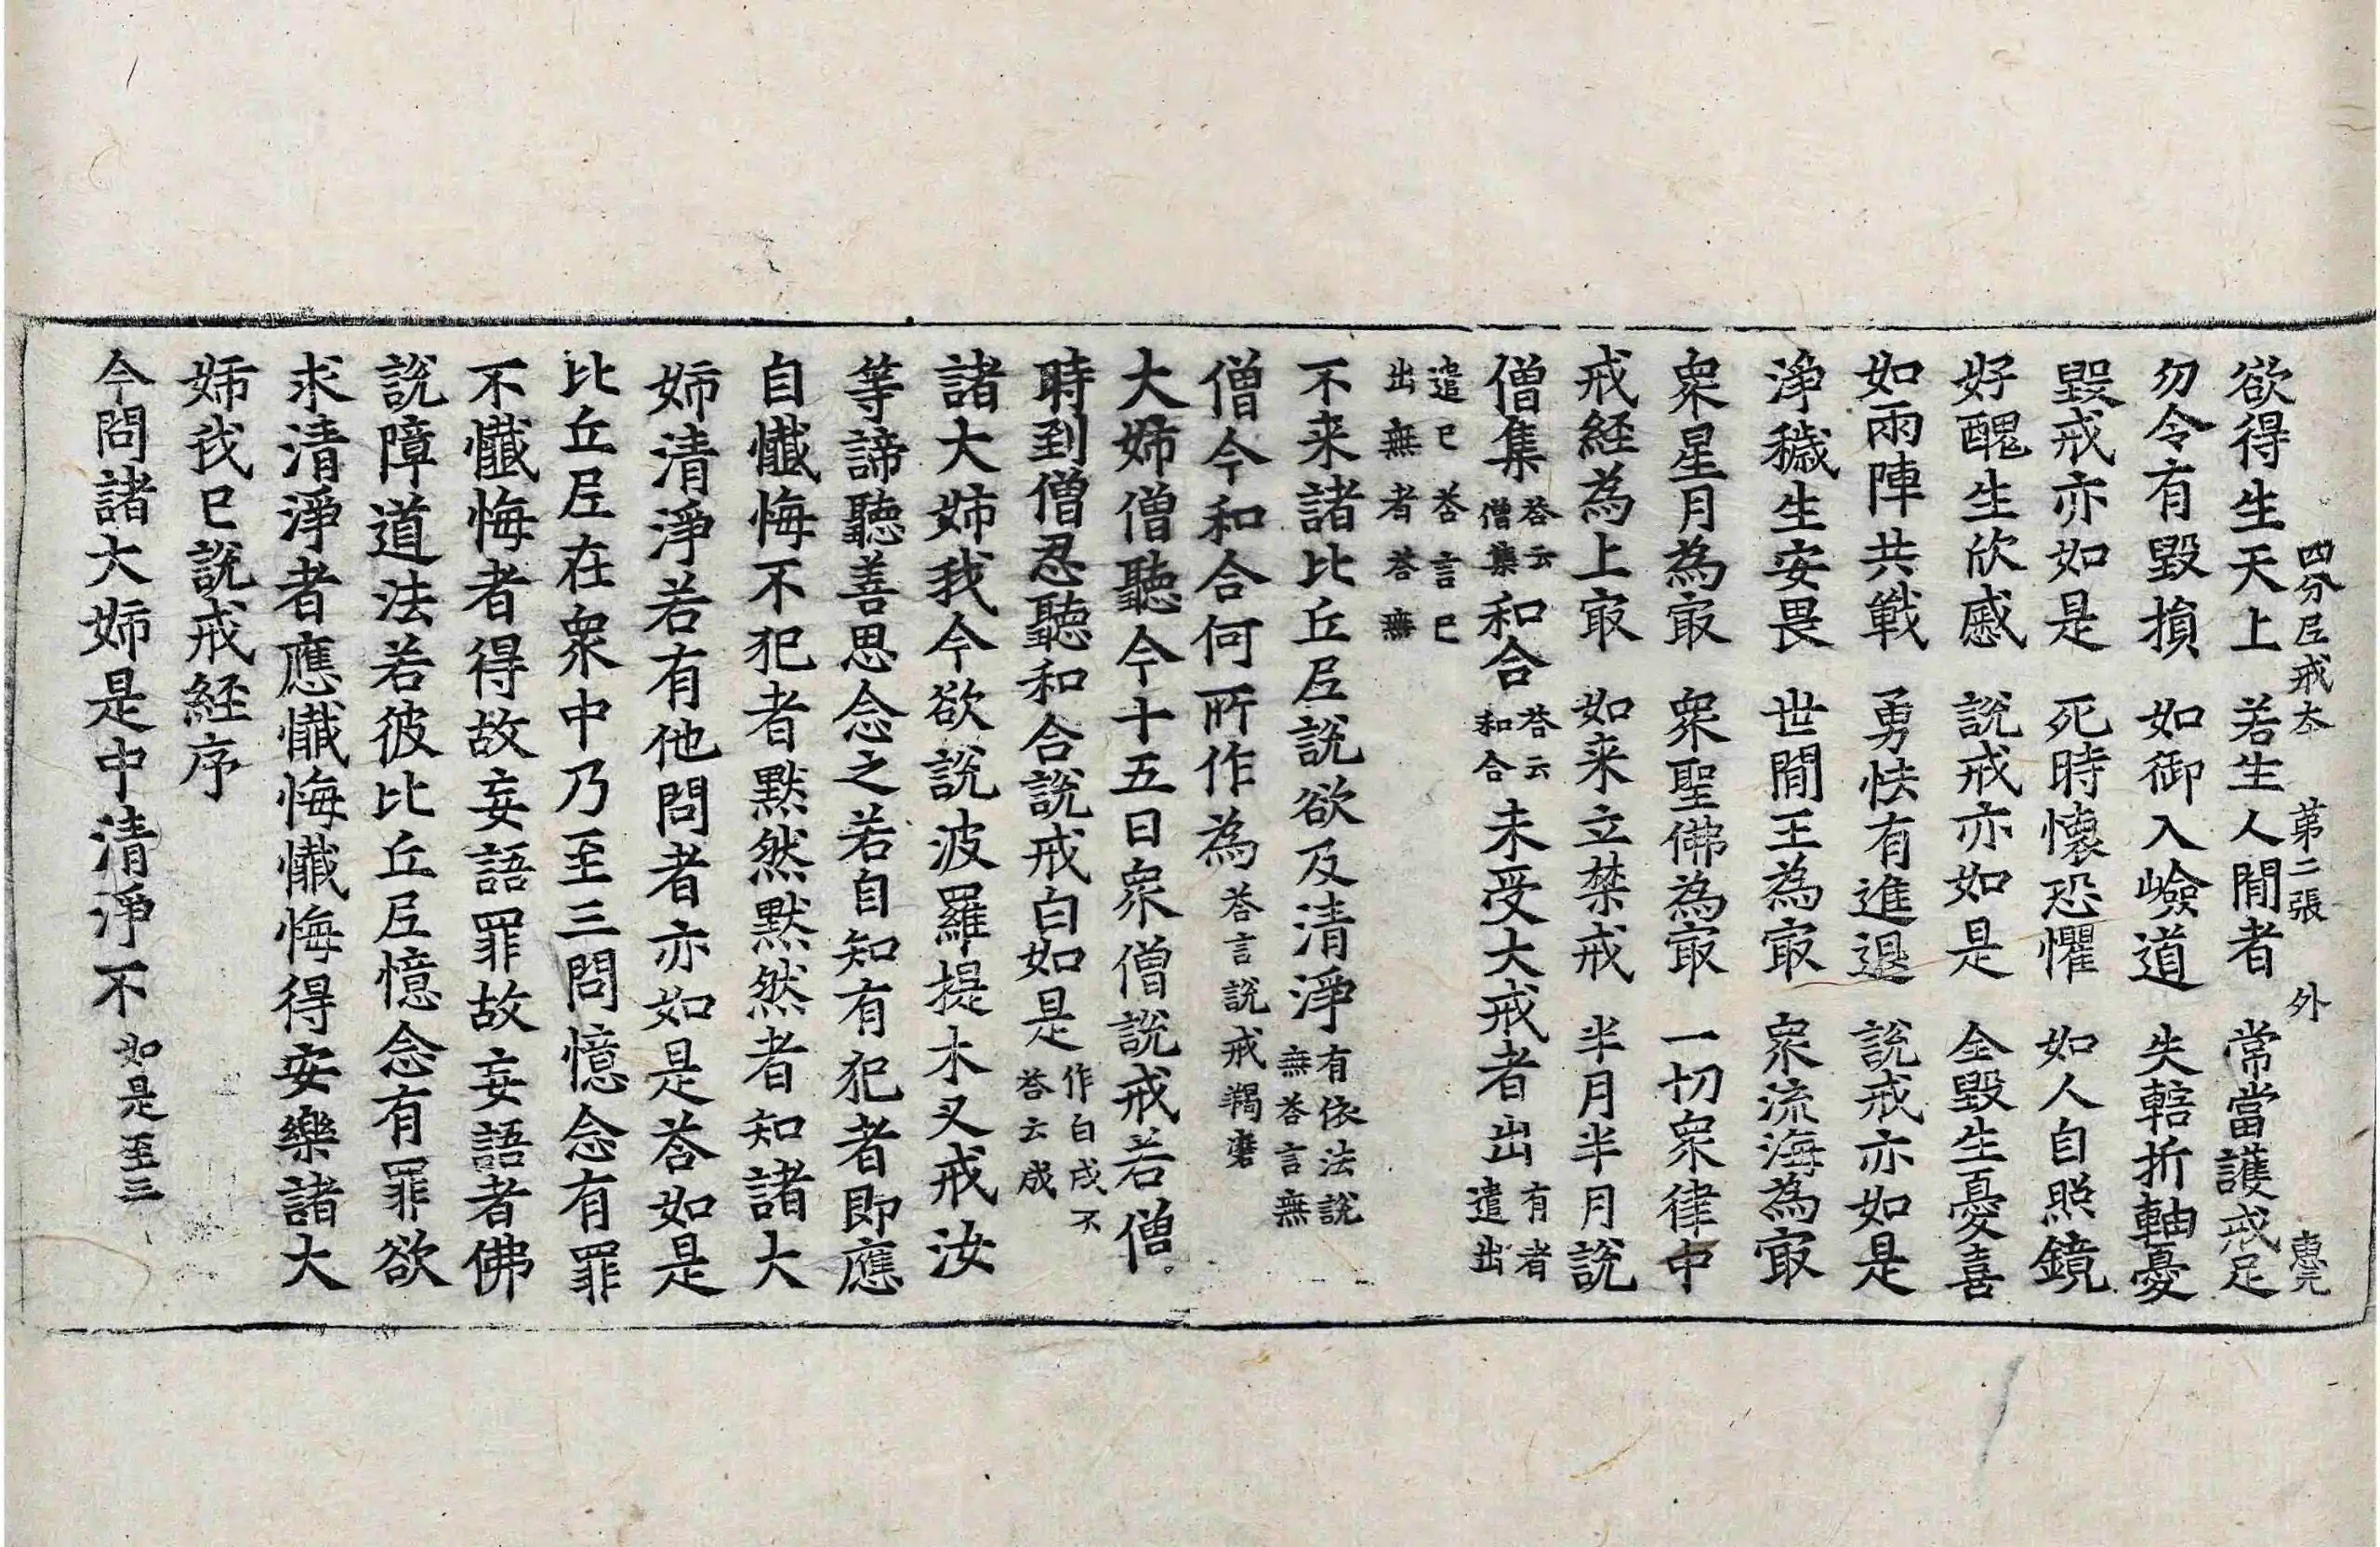 四分尼戒本　第二張　外　惠元
欲得生天上　若生人間者　常當護戒足
勿令有毀損　如御入嶮道　失轄折軸憂
毀戒亦如是　死時懷恐懼　如人自照鏡
好醜生欣慼　說戒亦如是　全毀生憂喜
如兩陣共戰　勇怯有進退　說戒亦如是
淨穢生安畏　世間王為冣　衆流海為冣
衆星月為冣　衆聖佛為冣　一切衆律中
戒経為上冣　如来立禁戒　半月半月說
僧集荅云僧集和合荅云和合未受大戒者出有者遣出
遣已荅言已出無者荅無
不来諸比丘尼說欲及清淨有依法說無荅言無
僧今和合何所作為荅言說戒羯磨
大姉僧聽今十五日衆僧說戒若僧
時到僧忍聽和合說戒白如是作白成不荅云成
諸大姉我今欲說波羅提木叉戒汝
等諦聽善思念之若自知有犯者即應
自懺悔不犯者默然默然者知諸大
姉清淨若有他問者亦如是荅如是
比丘尼在衆中乃至三問憶念有罪
不懺悔者得故妄語罪故妄語者佛
說障道法若彼比丘尼憶念有罪欲
求清淨者應懺悔懺悔得安樂諸大
姉我已說戒経序
今問諸大姉是中清淨不如是至三